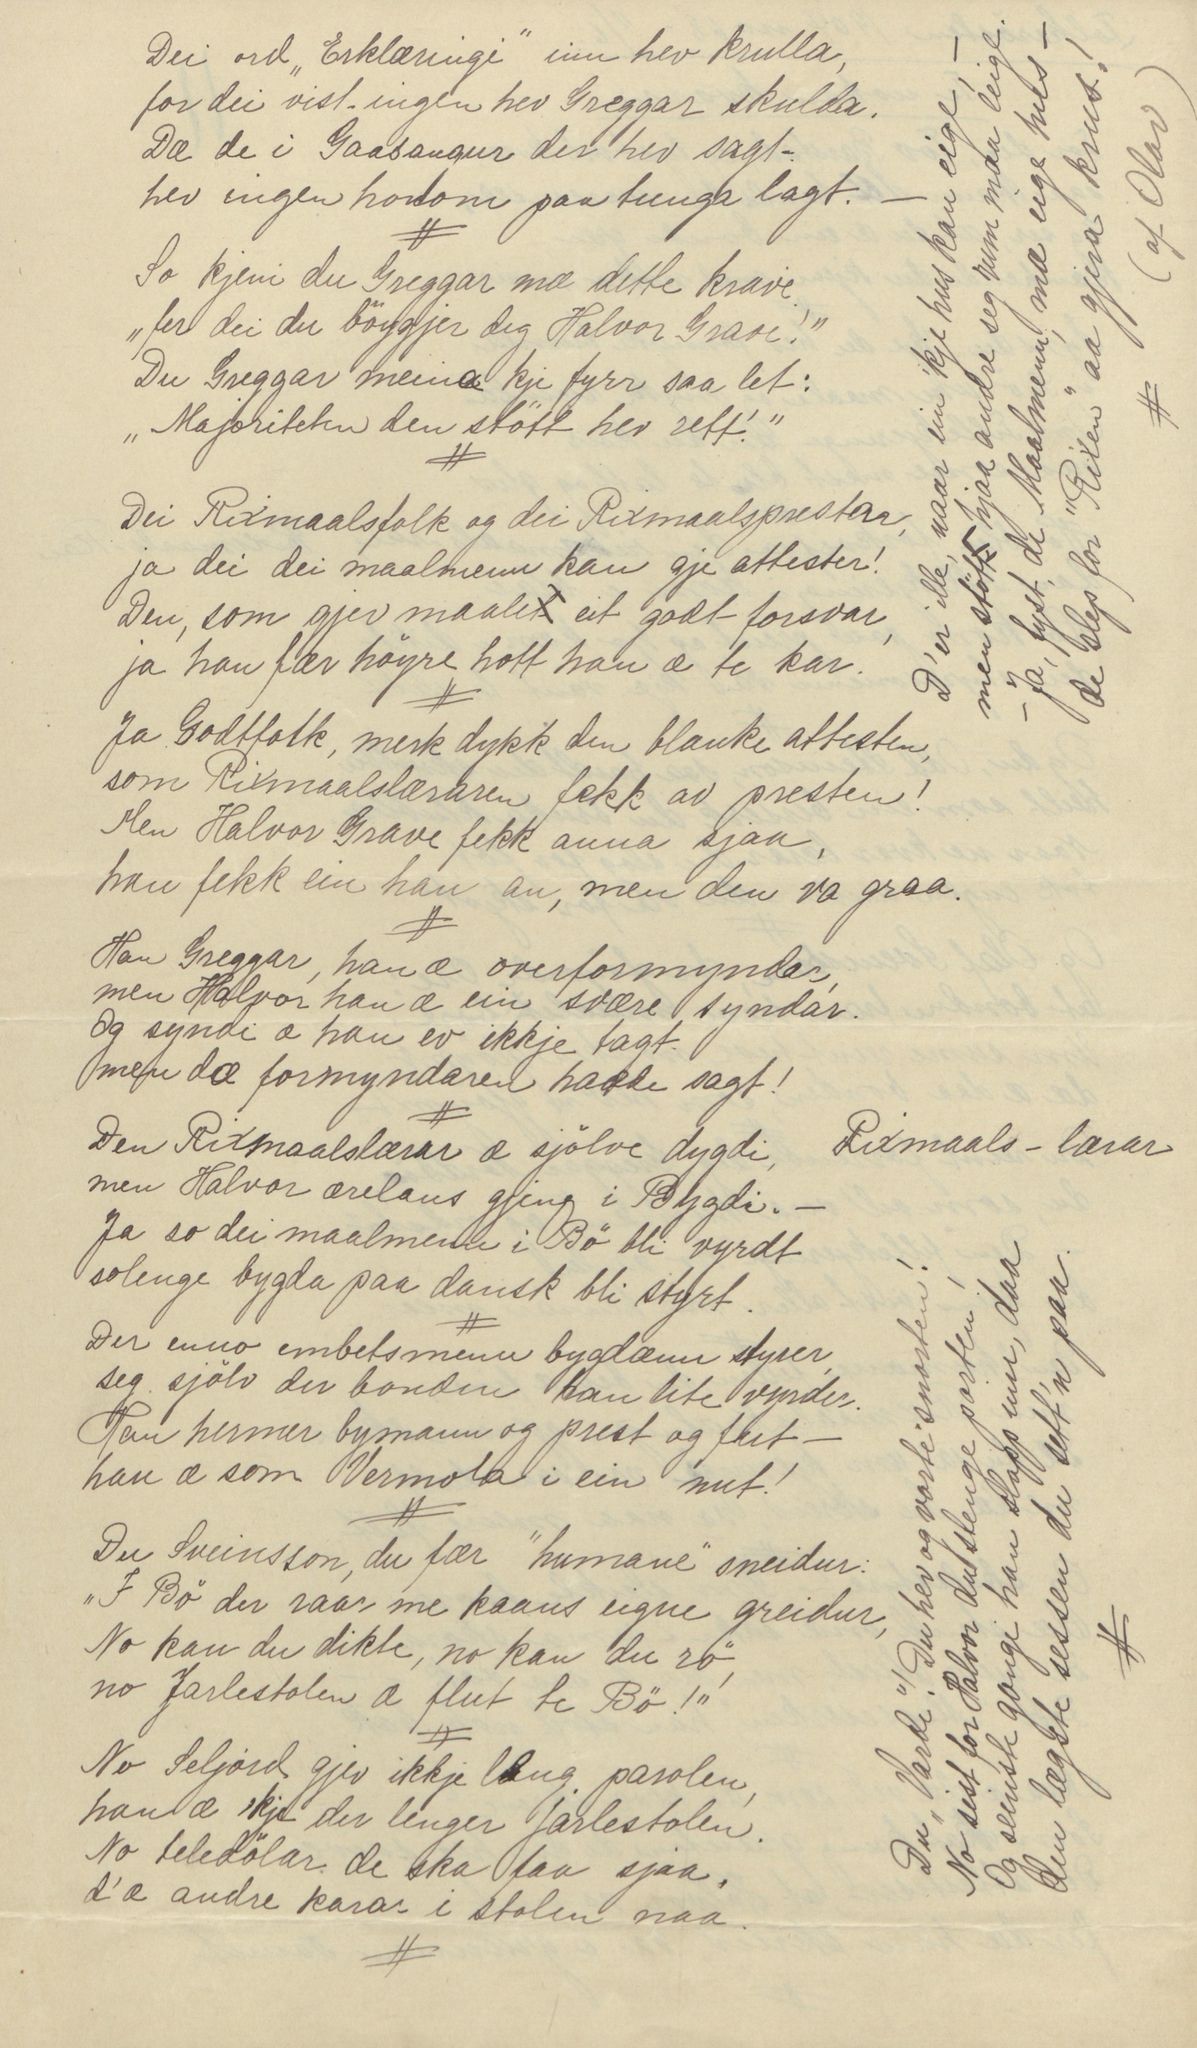 Dei ord „Erklæringi" inn hev krulla,
for dei vist ingen hev Greggar skulda.
Dæ de i Gaasaugur der hev sagt –
hev ingen honom paa tunga lagt. –
#
So kjem du Greggar mæ dette krave
„fer dei du böygjer deg Halvor Grave!"
Du Greggar meina kje fyrr saa let:
„Majoriteten den stött hev rett!"
#
Dei Rixmaalsfolk og dei Rixmaalsprestar,
ja dei dei maalmenn kan gje attester!
Den, som gjev maalet eit godt forsvar,
ja han fær höyre hott han æ te kar!
#
Ja Godtfolk, merk dykk den blanke attesten,
som Rixmaalslæraren fekk av presten!
Men Halvor Grave fekk anna sjaa,
han fekk ein han au, men den va graa.
#
Han Greggar, han æ overformyndar,
men Halvor han æ ein svære syndar.
Og syndi æ han ev ikkje tagt
men dæ formyndaren hadde sagt!
#
Den Rixmaalslærar æ sjölve dygdi,
men Halvor ærelaus gjeng i Bygdi. –
Ja so dei maalmenn i Bö bli vyrdt
solenge bygda paa dansk bli styrt.
#
Der enno embetsmenn bygdænn styrer,
seg sjölv der bonden han lite vyrder.
Han hermer bymann og prest og fut –
han æ som Vermota i ein nut!
#
Du Sveinsson, du fær "humane" sneidur:
„I Bö der raar me kaans eigne greidur,
No kan du dikte, no kan du rö,
no Jarlestolen æ flut te Bö!"
#
No Seljord gjev ikkje lang parolen,
han æ kje der lenger Jarlestolen.
No teledölar de ska faa sjaa,
d'æ andre karar i stolen naa.
#
D'er ille, naar ein kje hus kan eige, –
men stött hjaa andre seg rum maa leige.
– Ja, fyst de Maalmenn, mæ eige hus –
de slep for "Rixen" aa gjera krus!
#
(af Olav)
Rixmaals-lærar
Du, „Varde"! Du hev og vorte snorten!
No sist for Halvor du stenge porten!
Og seinste gonge han slapp inn, daa
den lægste sessen du sett'n paa.
#